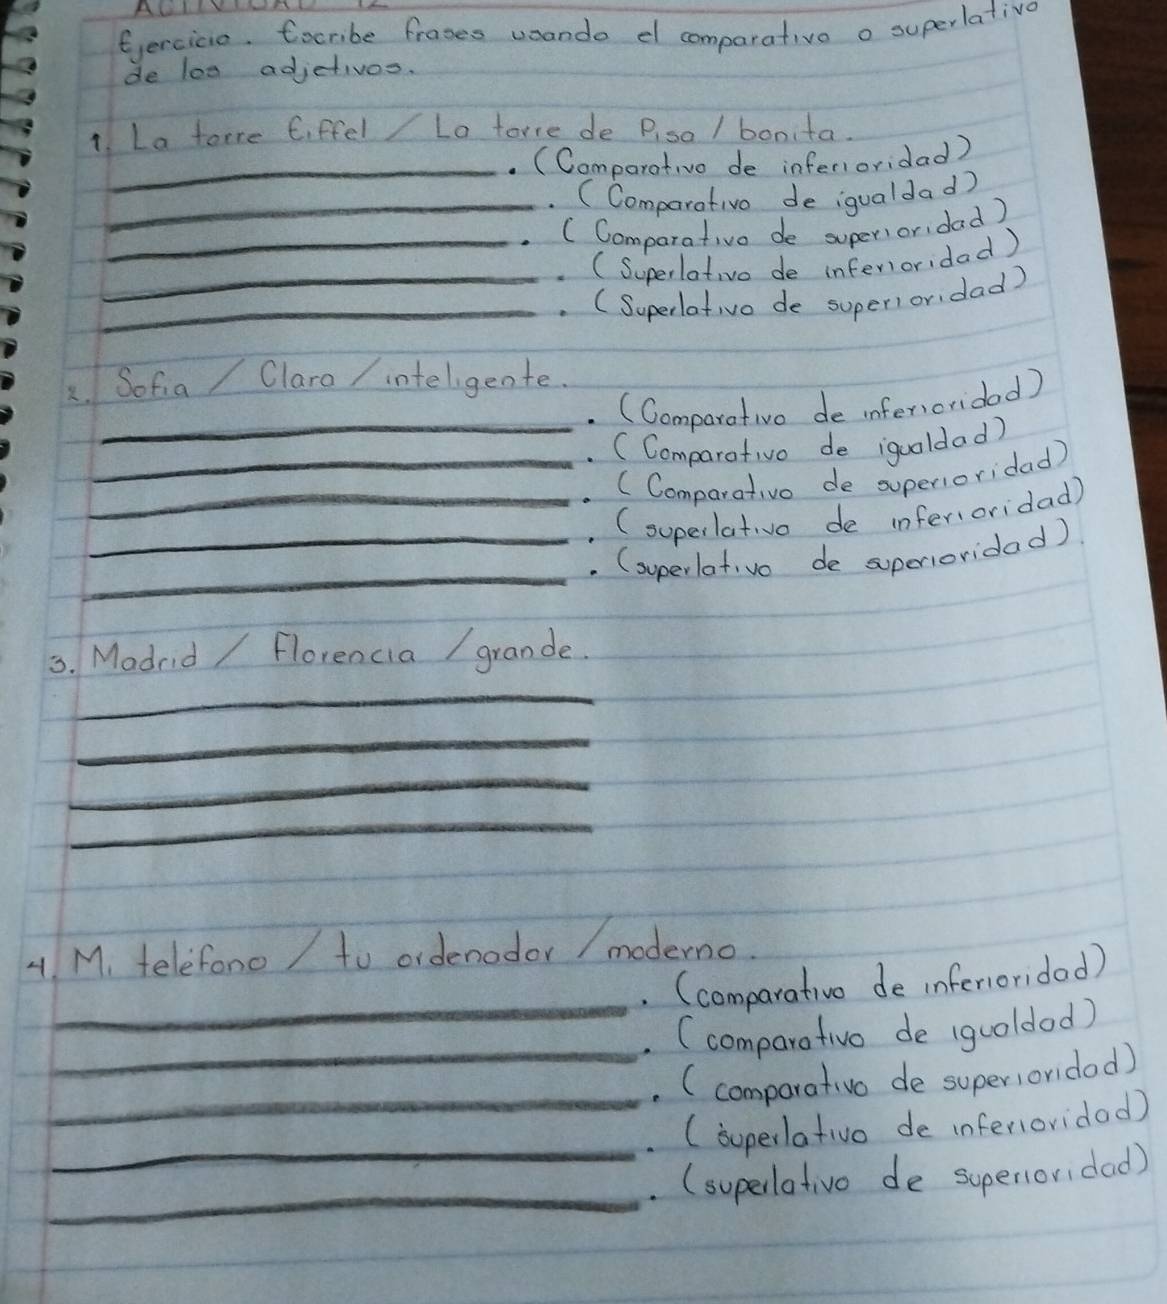 ACTIVIDAD 12
Ejercicio. Escribe frases usando el comparativo o superlativo
de los adjetivos.
1. La torre Eiffel / La torre de Pisa / bonita.
. (Comparativo de inferioridad)
. (Comparativo de igualdad)
. (Comparativo de superioridad)
. (Superlativo de inferioridad)
. (Superlativo de superioridad)
2. Sofia / Clara / inteligente.
. (Comparativo de inferioridad)
. (Comparativo de igualdad)
. (Comparativo de superioridad)
. (superlativo de inferioridad)
. (superlativo de superioridad)
3. Madrid / Florencia / grande.
4. Mi teléfono / tu ordenador / moderno.
. (comparativo de inferioridad)
. (comparativo de igualdad)
. (comparativo de superioridad)
. (superlativo de inferioridad)
. (superlativo de superioridad)